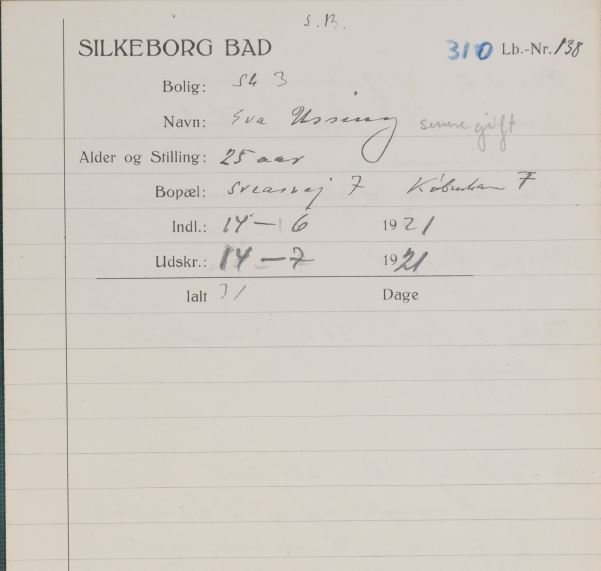 S.B.
SILKEBORG BAD 310 Lb.-Nr. 138
Bolig: Sh 3
Navn: Eva Ussing senere gift
Alder og Stilling: 25 aar
Bopæl: Sveasvej 7 København F
Indl.: 14 — 6 1921
Udskr.: 14 — 7 1921
Ialt 31 Dage